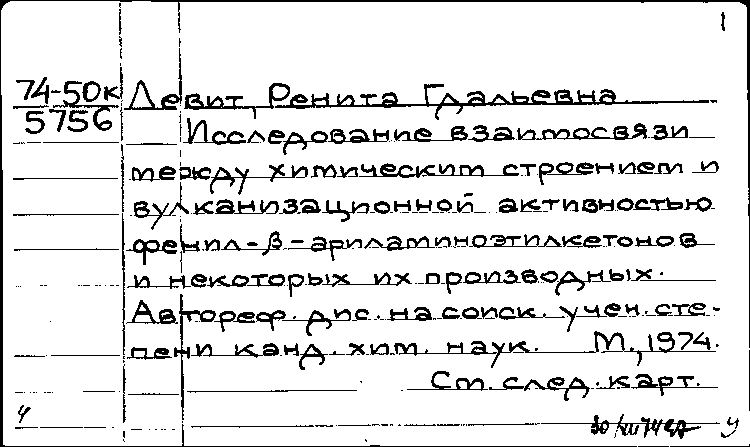 1
74-50к Левит, Ренита Гдальевна
5756 Исследование взаимосвязи
между химическим строением и
вулканизационной активностью
фенил-β-ариламиноэтилкетонов
и некоторых их производных.
Автореф. дис. на соиск. учен. сте-
пени канд. хим. наук. М., 1974.
См. след. карт.